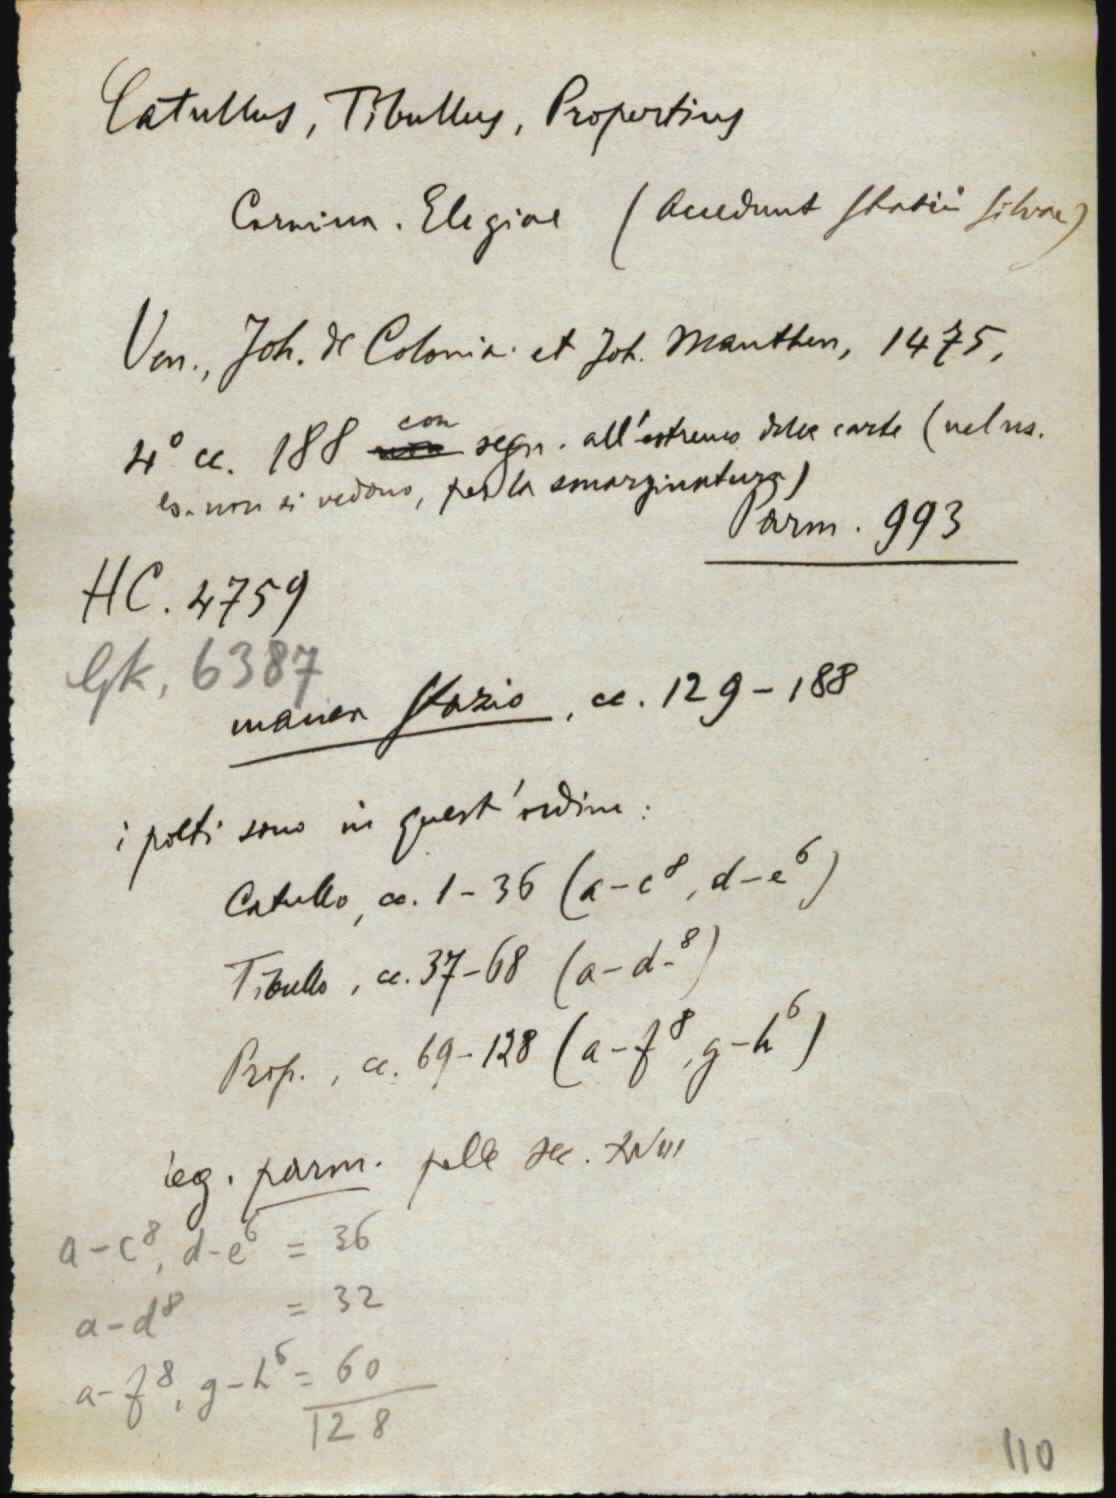 Catullus, Tibullus, Propertius
Carmina. Elegiae (Accedunt Statii Silvae)
Ven., Joh. de Colonia et Joh. Manthen, 1475,
4° cc. 188 con segn. all'estremo delle carte (nel ns.
es. non si vedono, per la smarginatura)
Parm. 993
HC. 4759
Gk, 6387
manca Stazio, cc. 129-188
i poeti sono in quest'ordine:
Catullo, cc. 1-36 (a-c⁸, d-e⁶)
Tibullo, cc. 37-68 (a-d-⁸)
Prop., cc. 69-128 (a-f⁸, g-h⁶)
leg. parm. pelle sec. XVIII
a-c⁸, d-e⁶ = 36
a-d⁸ = 32
a-f⁸, g-h⁶ = 60
128
110